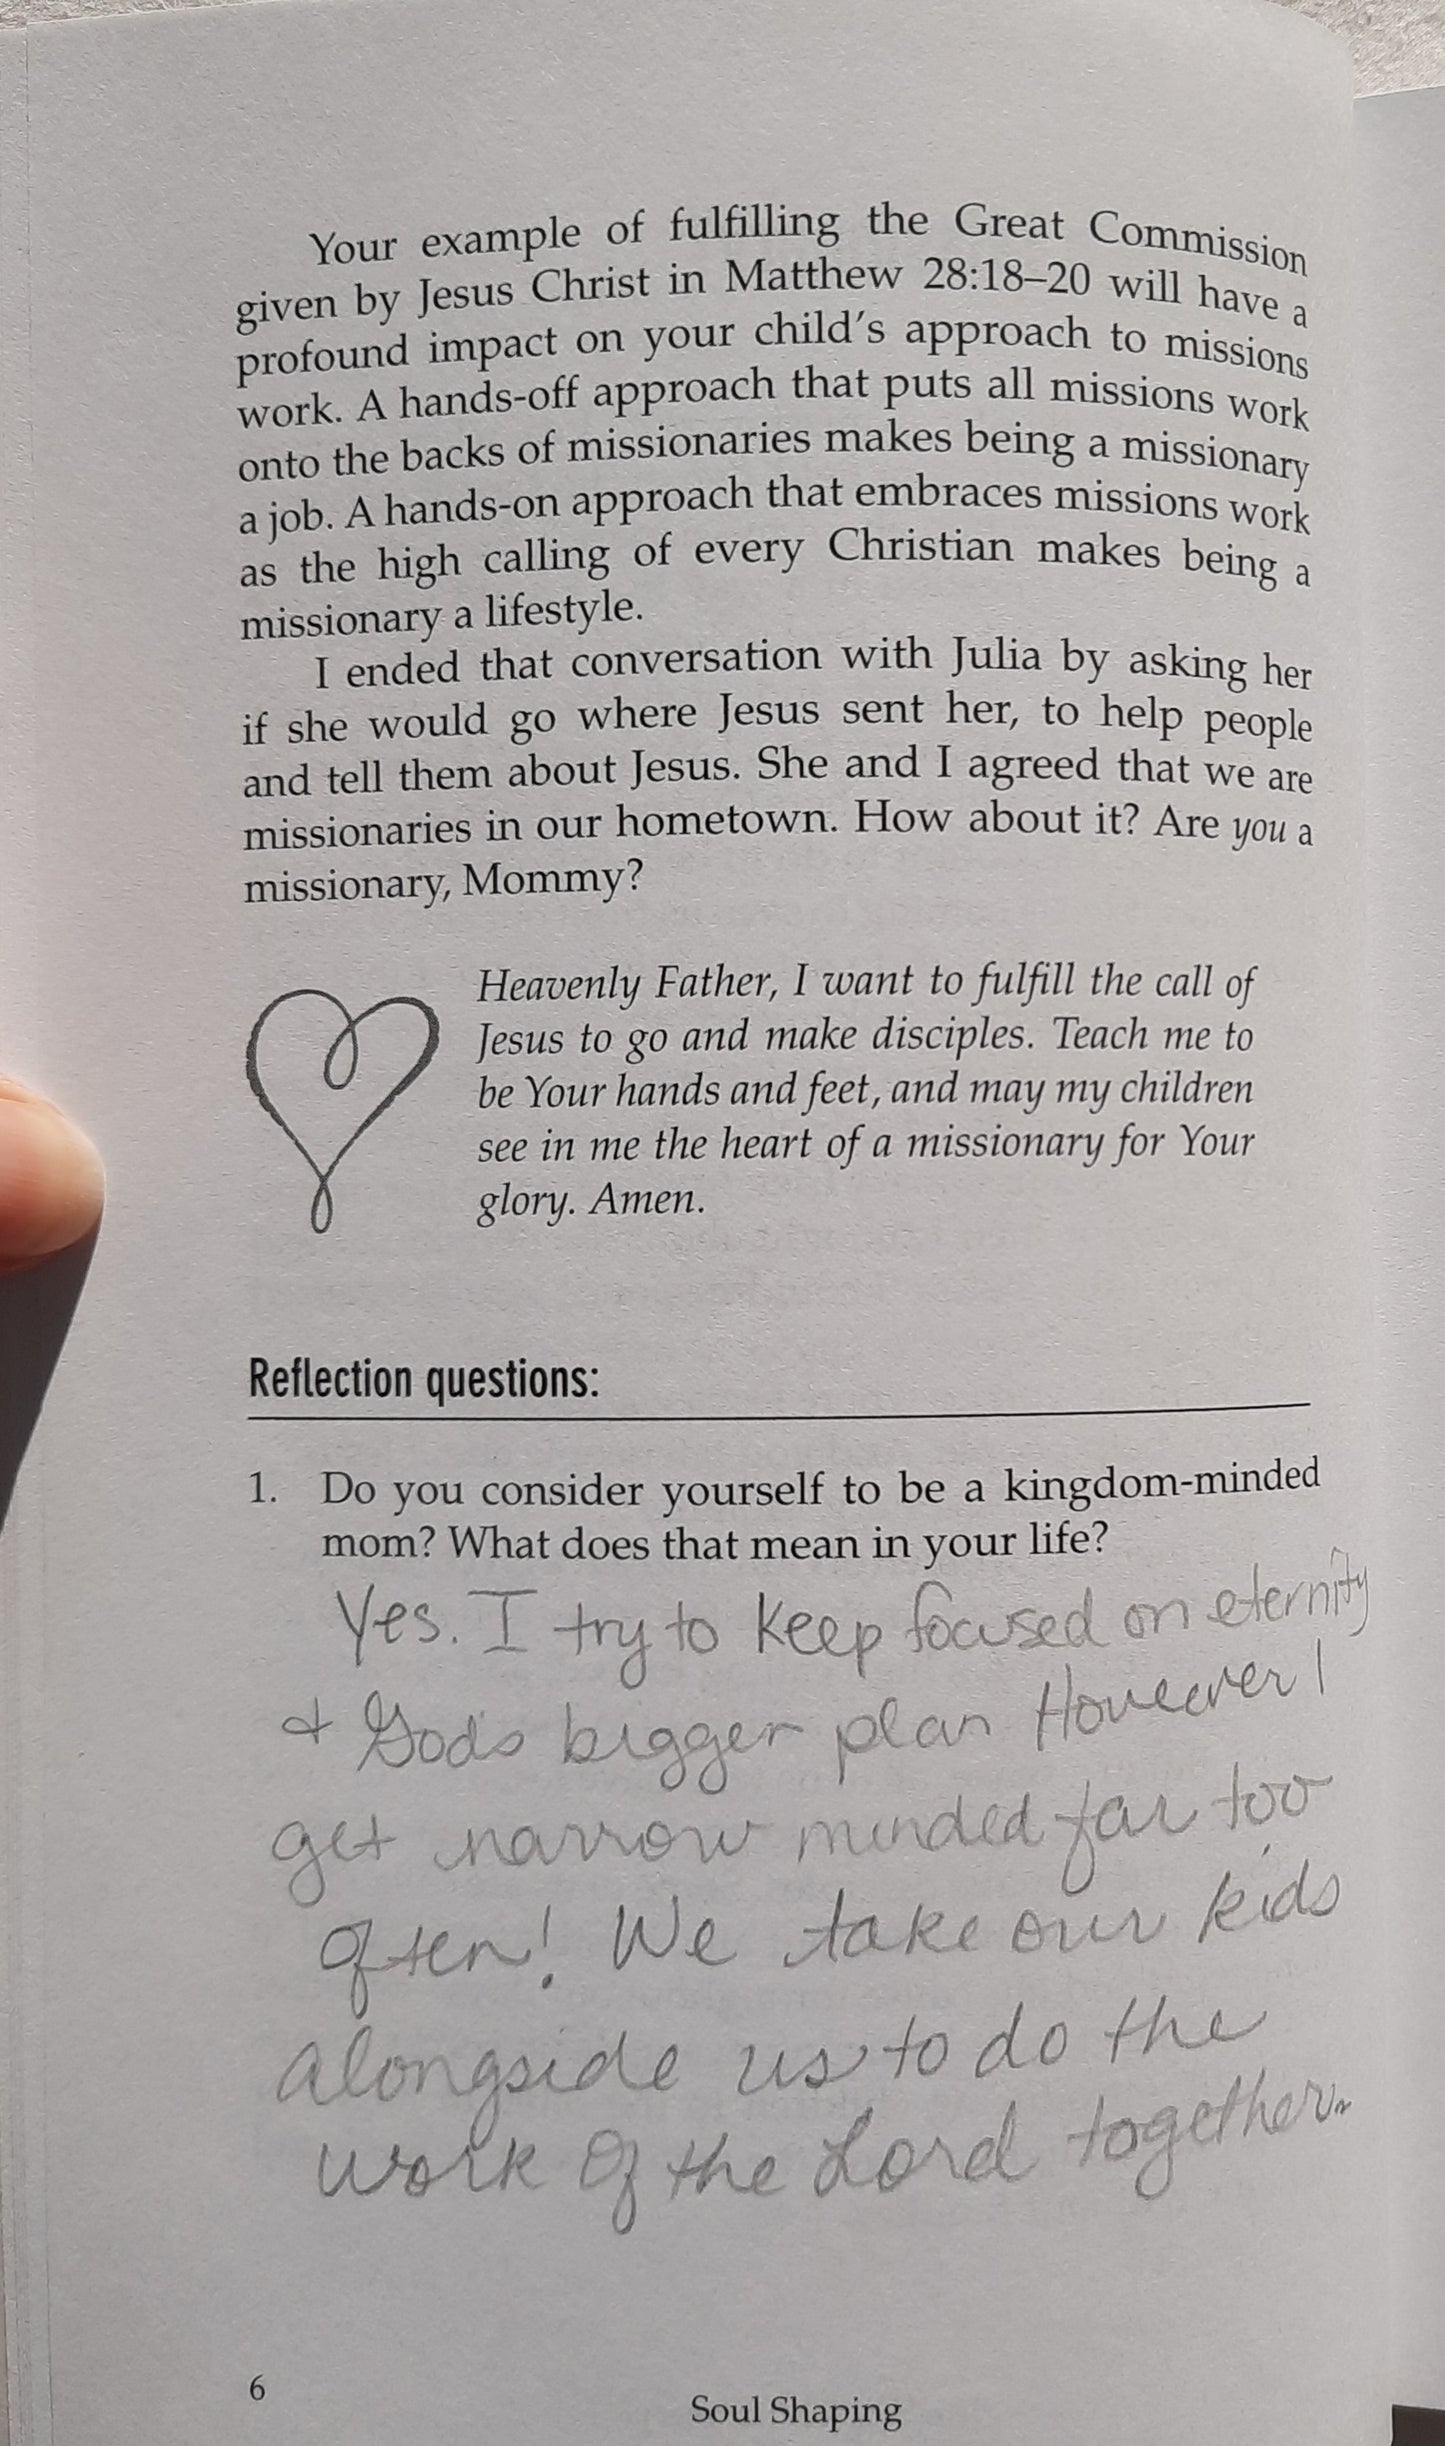 Your example of fulfilling the Great Commission
given by Jesus Christ in Matthew 28:18–20 will have a
profound impact on your child's approach to missions
work. A hands-off approach that puts all missions work
onto the backs of missionaries makes being a missionary
a job. A hands-on approach that embraces missions work
as the high calling of every Christian makes being a
missionary a lifestyle.
I ended that conversation with Julia by asking her
if she would go where Jesus sent her, to help people
and tell them about Jesus. She and I agreed that we are
missionaries in our hometown. How about it? Are you a
missionary, Mommy?
Heavenly Father, I want to fulfill the call of
Jesus to go and make disciples. Teach me to
be Your hands and feet, and may my children
see in me the heart of a missionary for Your
glory. Amen.
Reflection questions:
1. Do you consider yourself to be a kingdom-minded
mom? What does that mean in your life?
Yes. I try to keep focused on eternity
& God's bigger plan However I
get narrow minded far too
often! We take our kids
alongside us to do the
work of the Lord together.
6
Soul Shaping